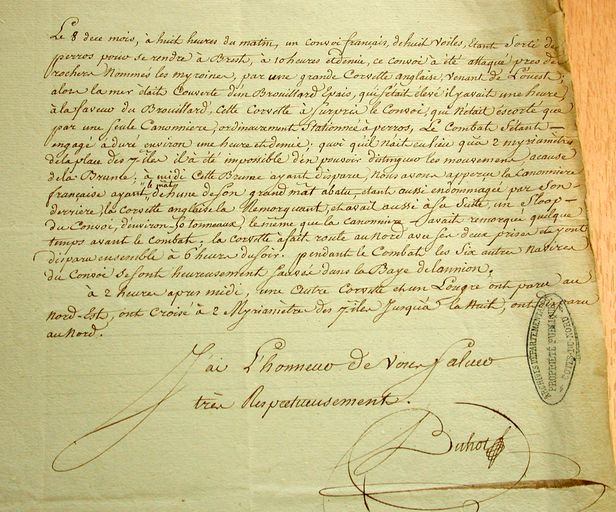 Le 8 dece mois, à huit heures du matin, un convoi français, dehuit voiles, Etant Sorti de
perros pour se rendre à Brest, à 10 heures etdemie, ce convoi a été attaqué près des
rochers Nommés les myroines, par une grande Corvette anglaise, Venant de L'ouest,
alors la mer était Couverte d'un Brouillard Epais, qui s'était élevé il yavait une heure,
à la faveur du Brouillard, Cette Corvette à Surpris le Convoi, qui Nétait éscorté que
par une Seule Canonnière, ordinairement Stationnée a perros, Le Combat S'étant
engagé à duré environ une heure etdemie; quoi quil nait eulieu que 2 myriamètres
dela place des 7 iles il à été imposible d'en pouvoir distinguer les mouvemens acause
dela Brume. à midi Cette Brume ayant disparu, Nous avons apperçu la canonnière
française ayant le mât de hune de Son grand mât abatu, etant aussi endommagée par Son
derrière, la corvette anglaise la Remorquant, etavait aussi à Sa Suite, un Sloop
du Convoi, d'environ 50 tonneaux, le même que la canonnière avait remorqué quelque
temps avant le Combat, la corvette afait route auNord avec Ses deux prises etont
disparu ensemble à 6 heures dusoir. pendant le Combat les Six autres Navires
du Convoi Sesont heureusement Sauvés dans la Baye delannion,
à 2 heures après midi, une Autre Corvette et un Lougre ont paru au
Nord-Est, ont Croisé à 2 Myriamètres des 7 iles Jusqu'à la Nuit, ont disparu
auNord.
J'ai L'honneur de vous Saluer
très Respectueusement.
Buhot
ARCHIVES DÉPARTEMENTALES
PROPRIÉTÉ PUBLIQUE
CÔTES-DU-NORD